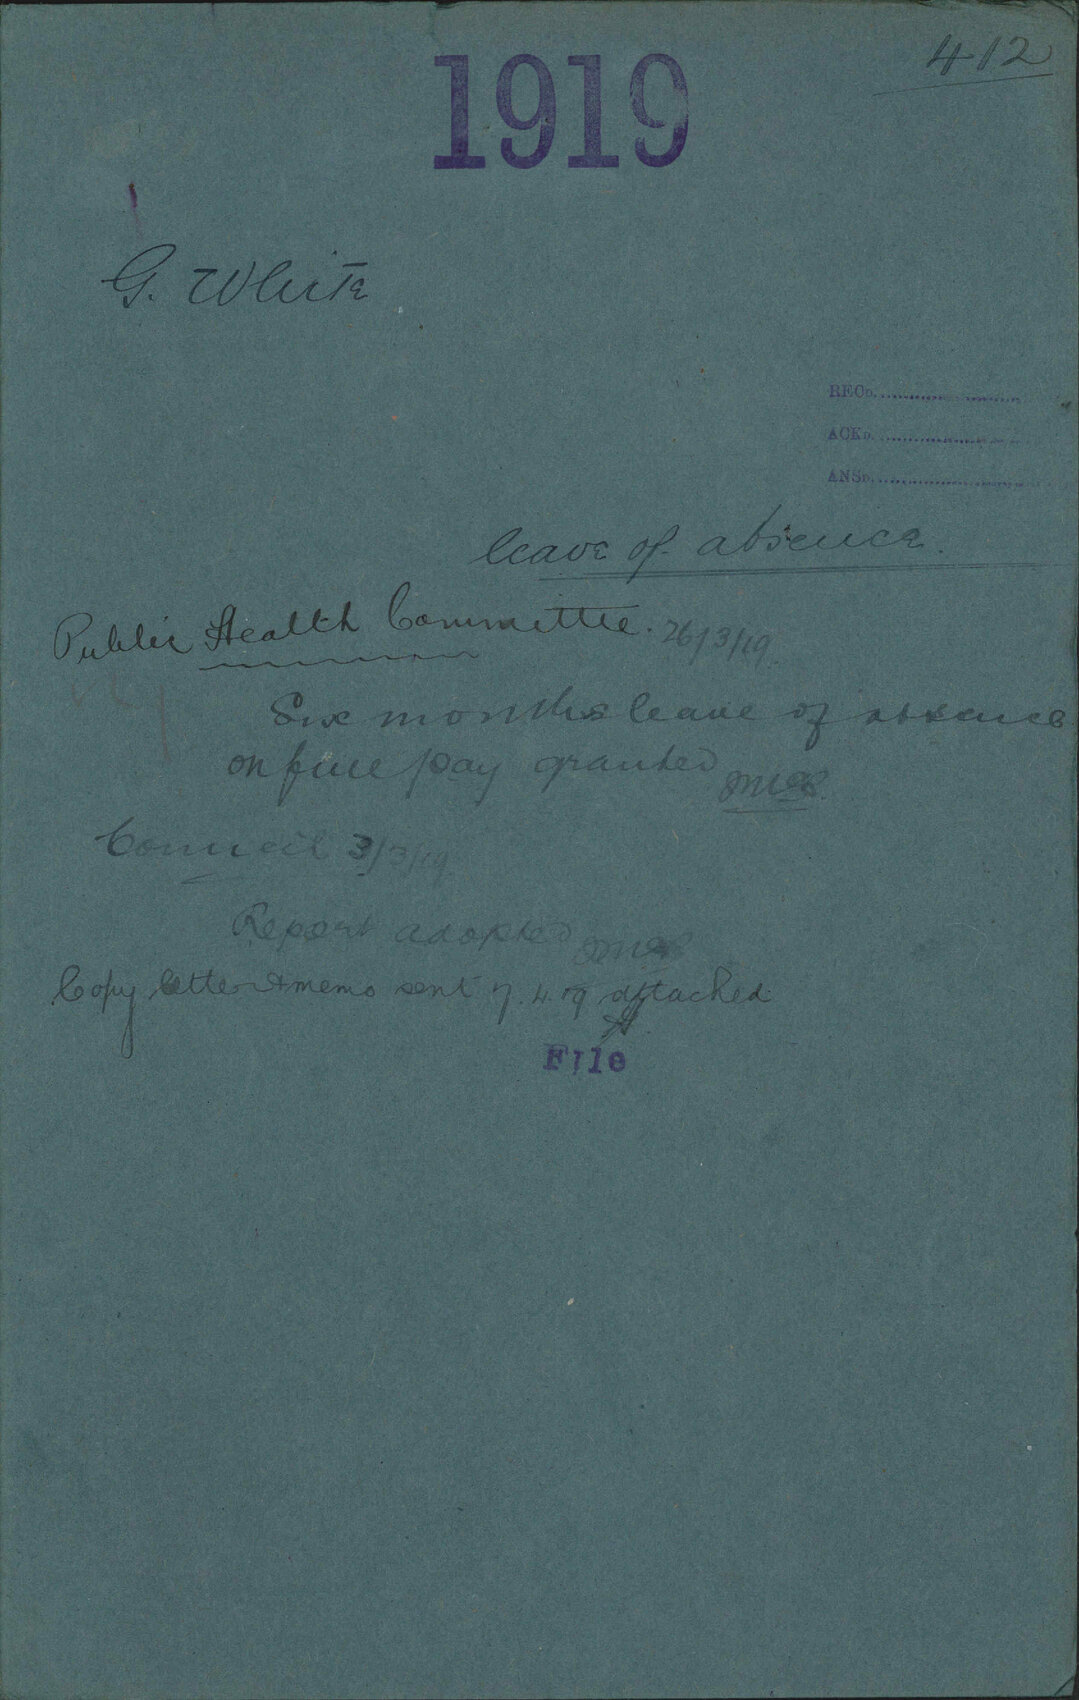 412
1919
G. White
RECD.
ACKD.
ANSD.
leave of absence.
Public Health Committee. 26/3/19
Six months leave of absence
on full pay granted
Council 3/3/19
Report adopted
Copy letter & memo sent 7.4.19 attached
File